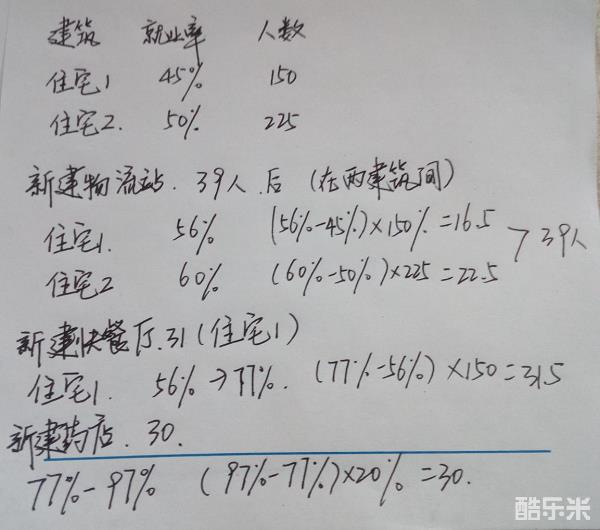 建筑 就业率 人数
住宅1 45% 150
住宅2. 50% 225
新建物流站. 39人后 (在两建筑间)
住宅1. 56% (56%-45%)×150%=16.5
> 39人
住宅2 60% (60%-50%)×225=22.5
新建快餐厅.31(住宅1)
住宅1. 56%→77%. (77%-56%)×150=31.5
新建药店.30.
77%-97% (97%-77%)×20%=30.
酷乐米